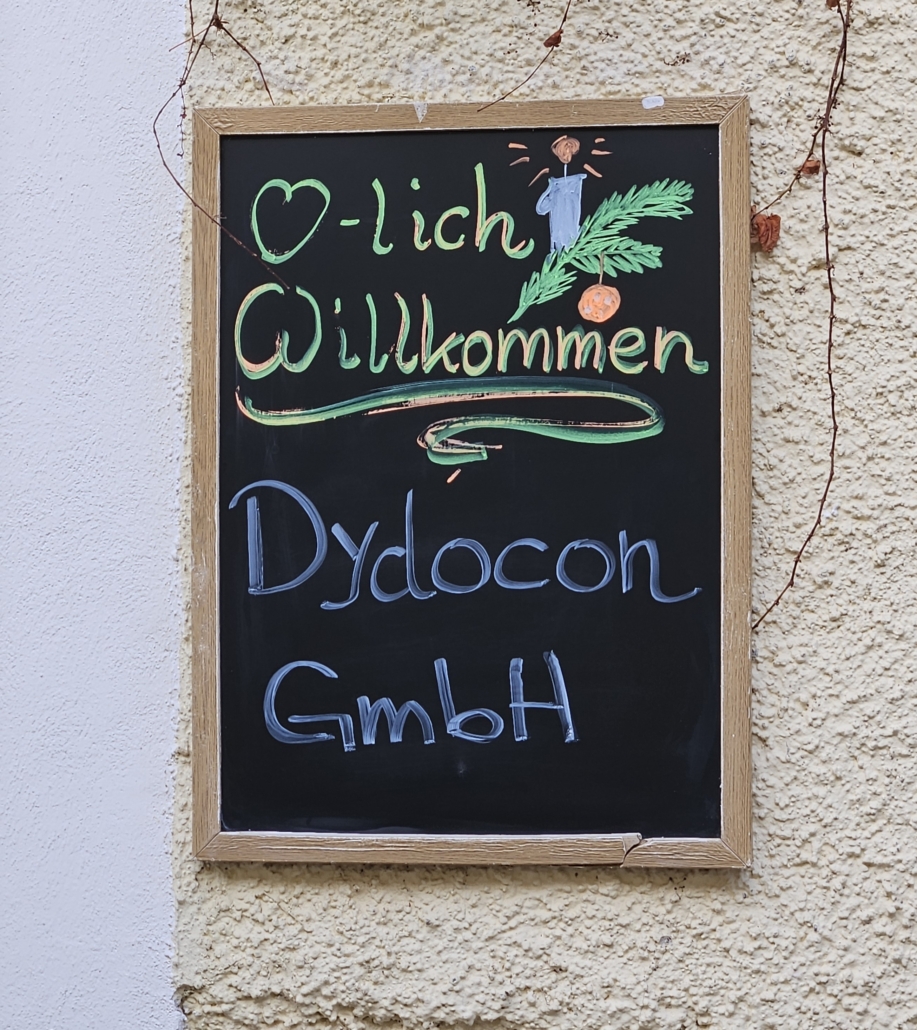 ♡-lich
Willkommen
Dydocon
GmbH